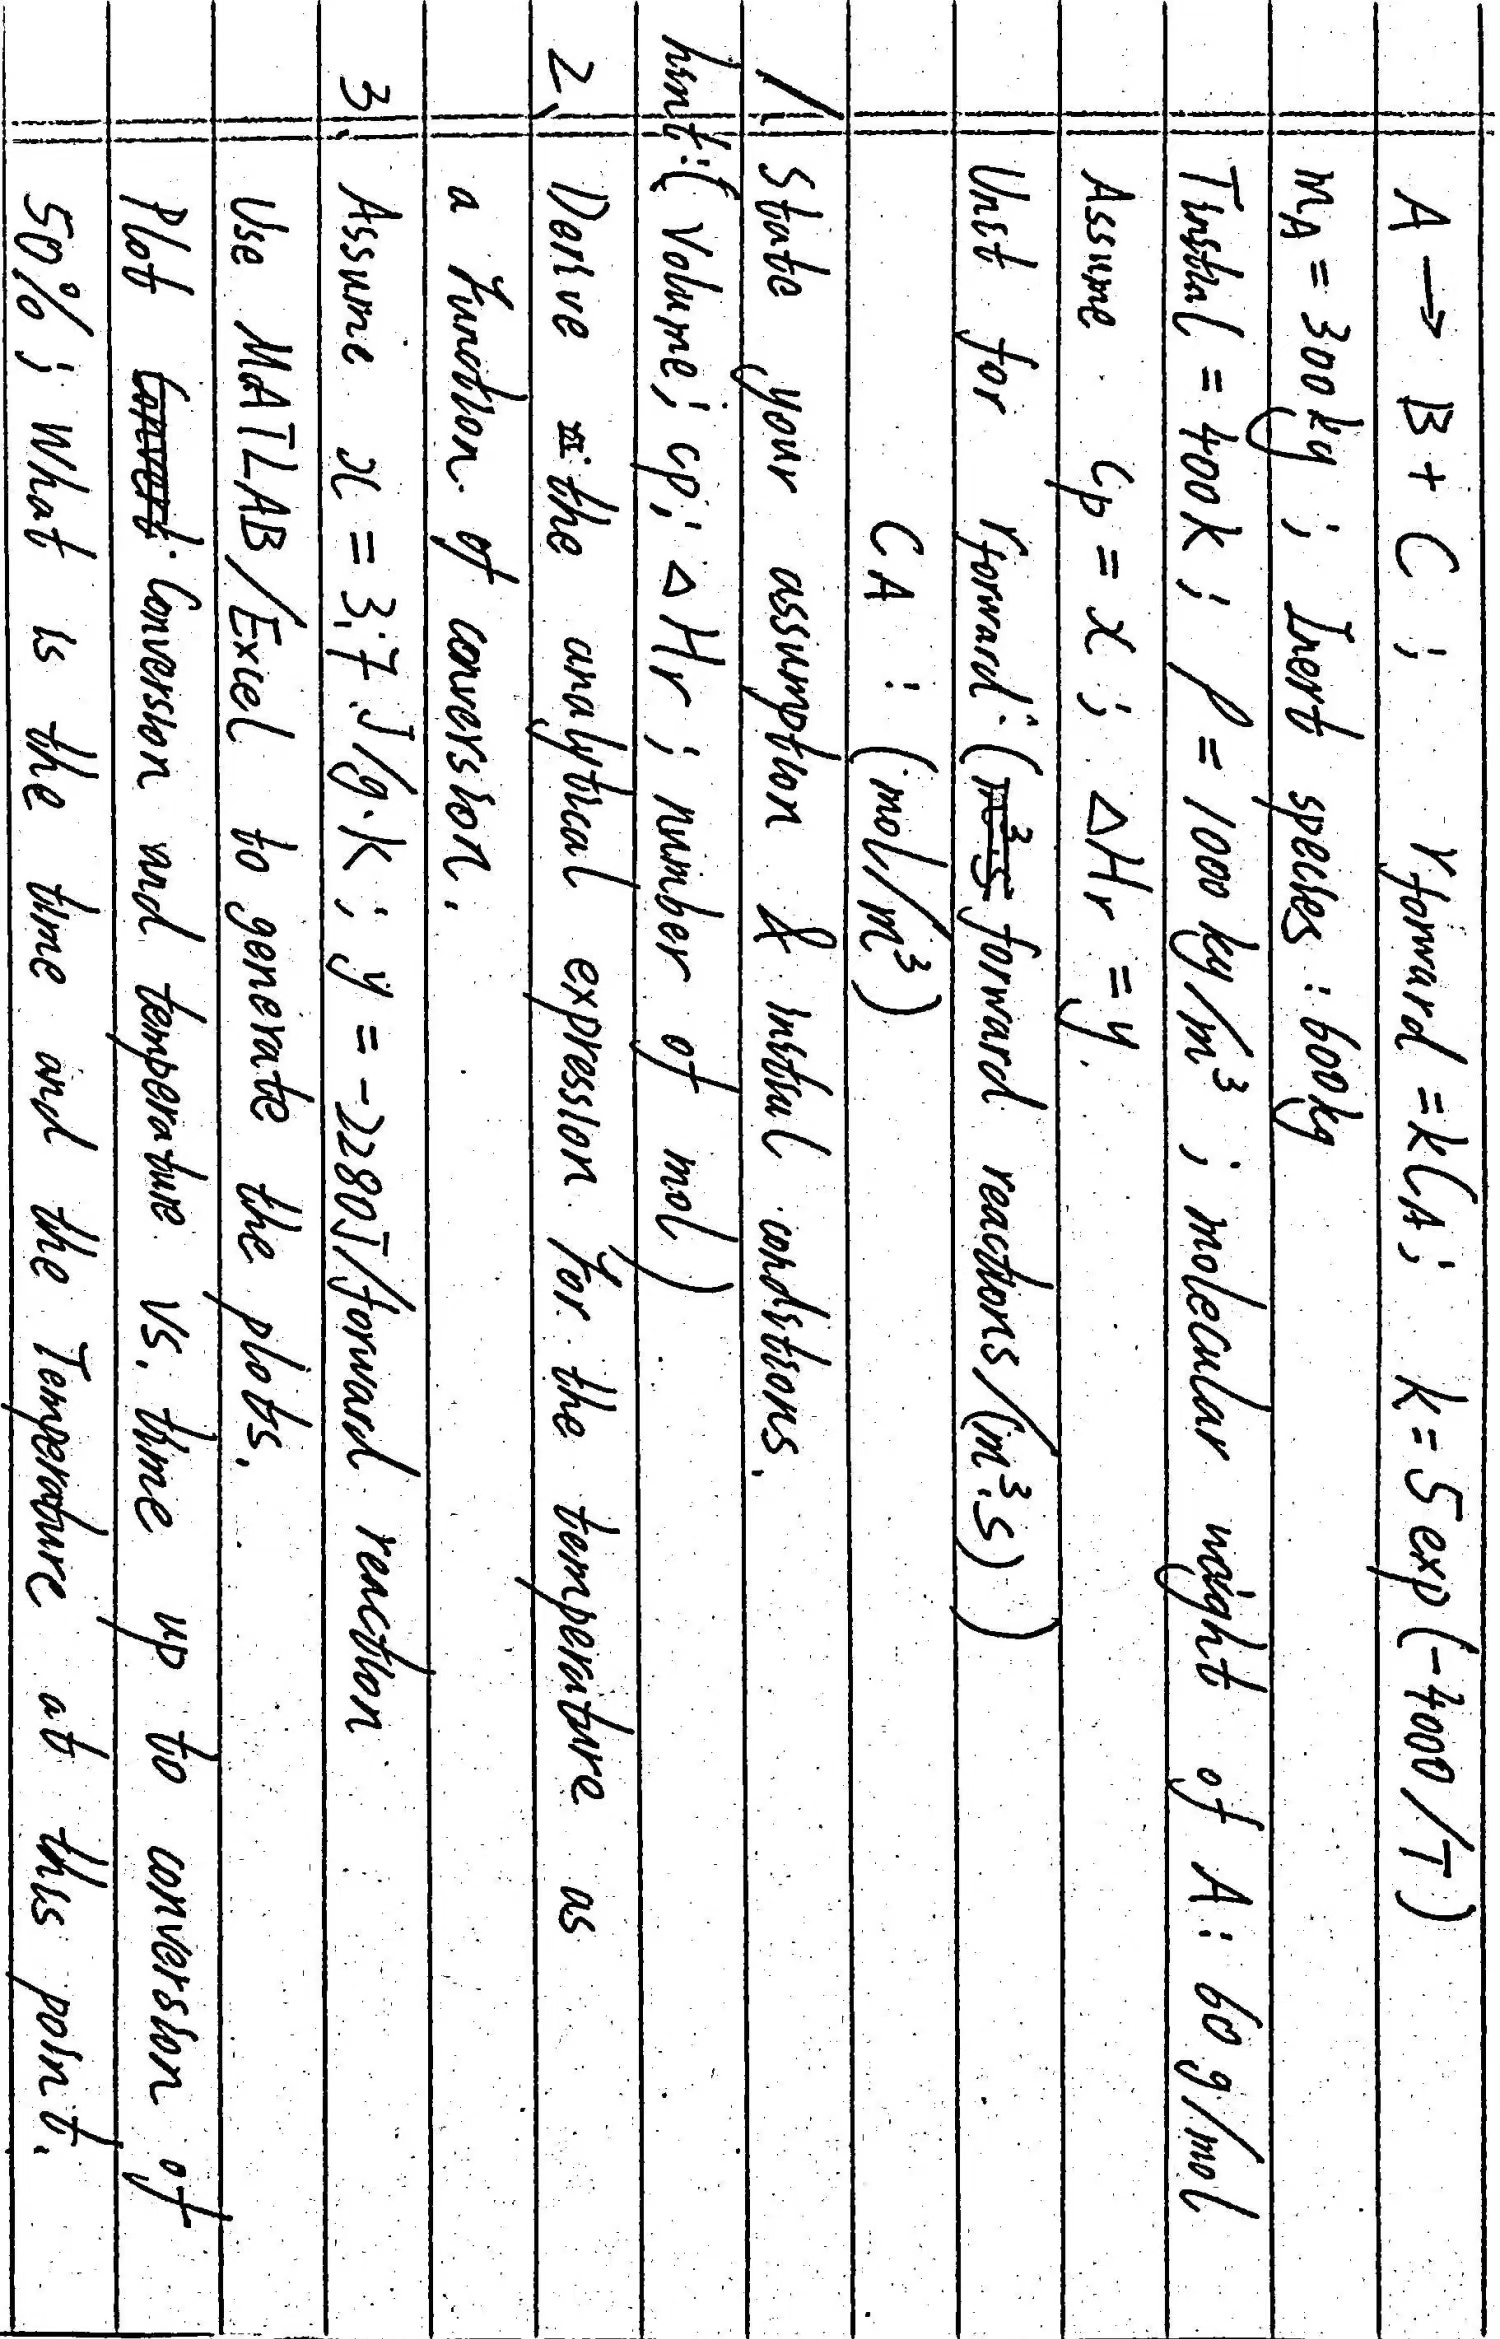 A → B + C ; rforward = kCA ; k = 5 exp (-4000/T)
mA = 300kg ; Inert species : 600kg
Tinitial = 400K ; ρ = 1000 kg/m³ ; molecular wight of A : 60 g/mol
Assume Cp = x ; ΔHr = y
Unit for rforward : (forward reactions/(m³·s))
CA : (mol/m³)
1. State your assumption & initial conditions.
hint : (Volume ; Cp ; ΔHr ; number of mol)
2. Derive the analytical expression for the temperature as
a function of conversion.
3. Assume x = 3.7 J/g·K ; y = -2280J/forward reaction
Use MATLAB/Excel to generate the plots.
Plot Conversion and temperature vs. time up to conversion of
50% ; What is the time and the Temperature at this point.